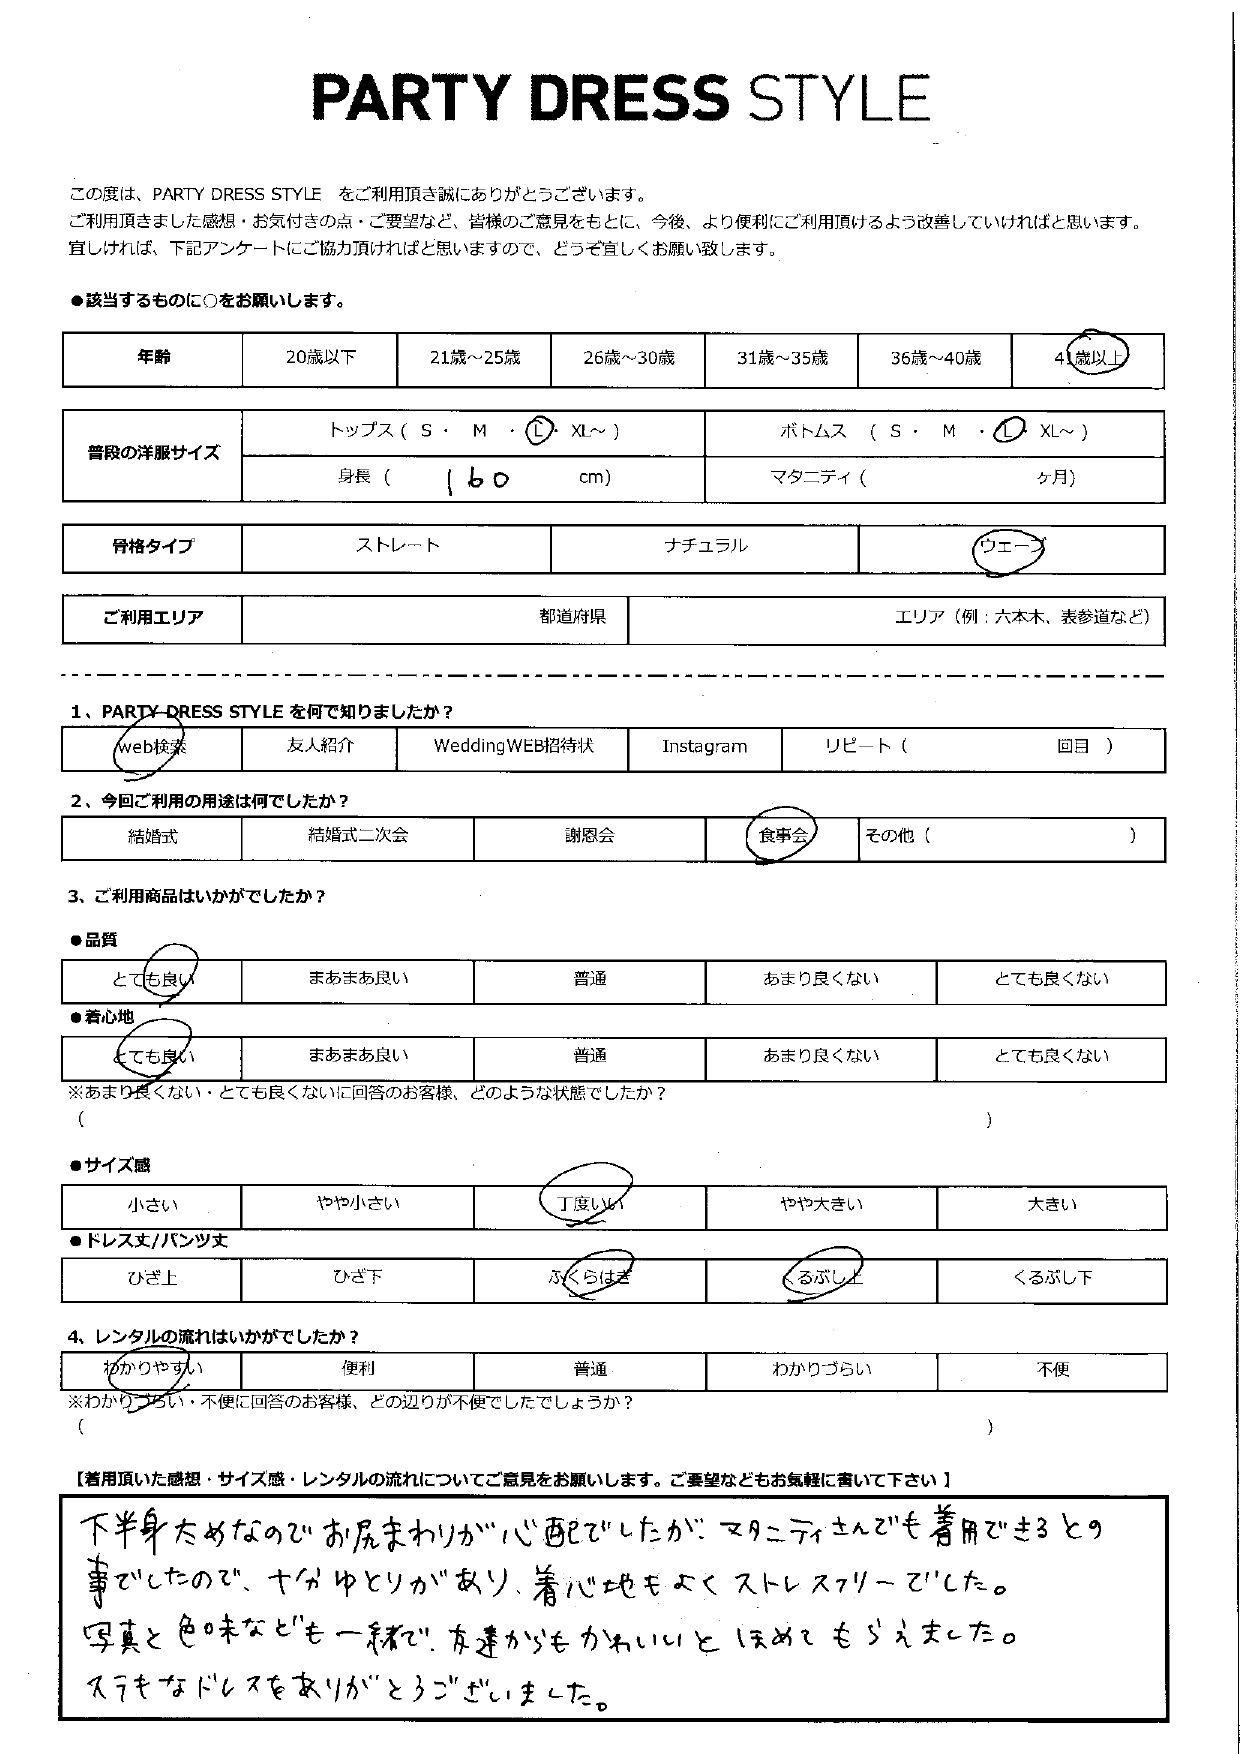 PARTY DRESS STYLE
この度は、PARTY DRESS STYLE をご利用頂き誠にありがとうございます。
ご利用頂きました感想・お気付きの点・ご要望など、皆様のご意見をもとに、今後、より便利にご利用頂けるよう改善していければと思います。
宜しければ、下記アンケートにご協力頂ければと思いますので、どうぞ宜しくお願い致します。
●該当するものに○をお願いします。
年齢 20歳以下 21歳～25歳 26歳～30歳 31歳～35歳 36歳～40歳 41歳以上
普段の洋服サイズ トップス ( S ・ M ・ L ・ XL～ ) ボトムス ( S ・ M ・ L ・ XL～ )
身長 ( 160 cm) マタニティ ( ヶ月)
骨格タイプ ストレート ナチュラル ウェーブ
ご利用エリア 都道府県 エリア（例：六本木、表参道など）
1、PARTY DRESS STYLE を何で知りましたか？
web検索 友人紹介 WeddingWEB招待状 Instagram リピート ( 回目 )
2、今回ご利用の用途は何でしたか？
結婚式 結婚式二次会 謝恩会 食事会 その他 ( )
3、ご利用商品はいかがでしたか？
●品質
とても良い まあまあ良い 普通 あまり良くない とても良くない
●着心地
とても良い まあまあ良い 普通 あまり良くない とても良くない
※あまり良くない・とても良くないに回答のお客様、どのような状態でしたか？
( )
●サイズ感
小さい やや小さい 丁度いい やや大きい 大きい
●ドレス丈/パンツ丈
ひざ上 ひざ下 ふくらはぎ くるぶし上 くるぶし下
4、レンタルの流れはいかがでしたか？
わかりやすい 便利 普通 わかりづらい 不便
※わかりづらい・不便に回答のお客様、どの辺りが不便でしたでしょうか？
( )
【着用頂いた感想・サイズ感・レンタルの流れについてご意見をお願いします。ご要望などもお気軽に書いて下さい 】
下半身太めなのでお尻まわりが心配でしたが、マタニティさんでも着用できるとの
事でしたので、十分ゆとりがあり、着心地もよくストレスフリーでした。
写真と色味なども一緒で、友達からもかわいいとほめてもらえました。
ステキなドレスをありがとうございました。